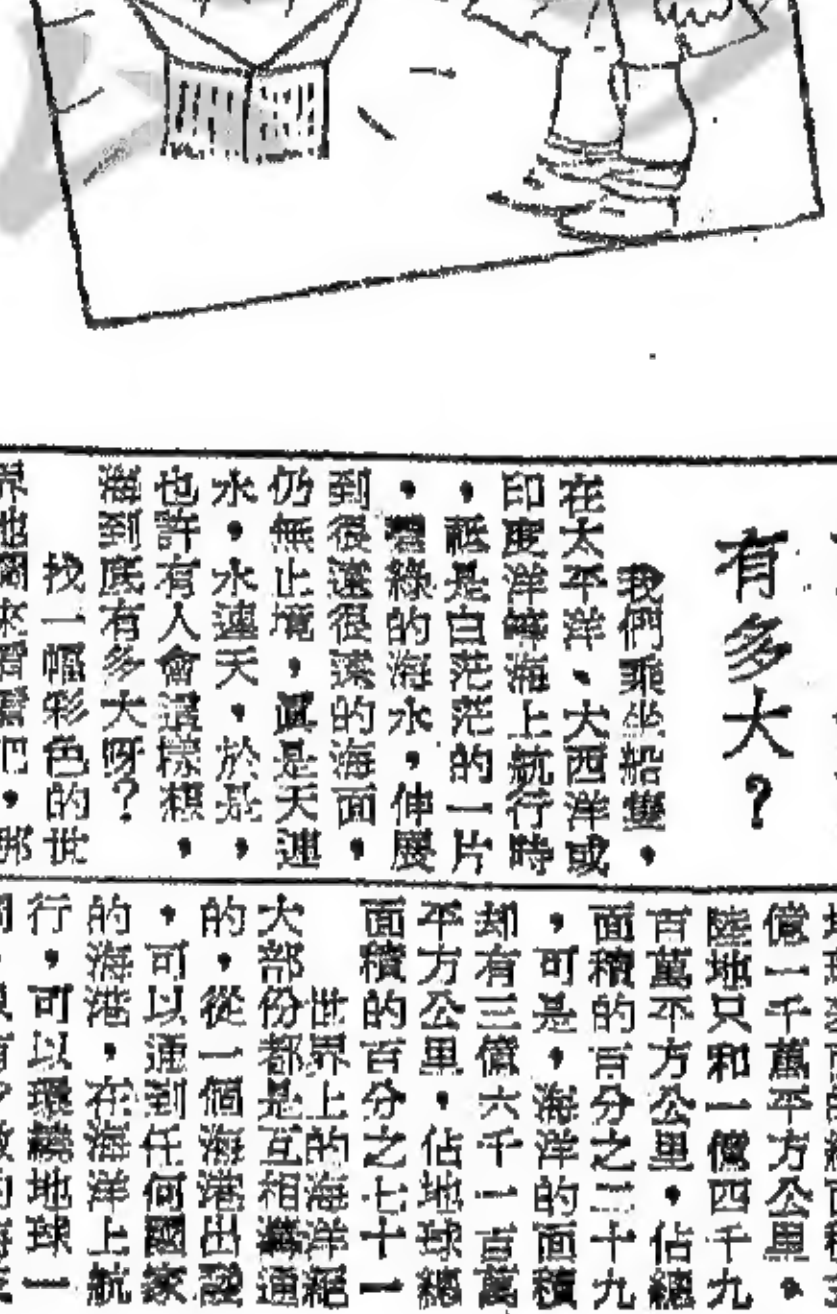 有多大？
我們乘坐船隻，
在太平洋、大西洋或
印度洋等海上航行時
，祗是白茫茫的一片
，碧綠的海水，伸展
到很遠很遠的海面，
仍無止境，眞是天連
水，水連天，於是，
也許有人會這樣想，
海到底有多大呀？
找一幅彩色的世
界地圖來看看吧，那
億一千萬平方公里。
陸地只和一億四千九
百萬平方公里，佔總
面積的百分之二十九
，可是，海洋的面積
却有三億六千一百萬
平方公里，佔地球總
面積的百分之七十一
世界上的海洋絕
大部份都是互相溝通
的，從一個海港出發
，可以通到任何國家
的海港，在海洋上航
行，可以環繞地球一